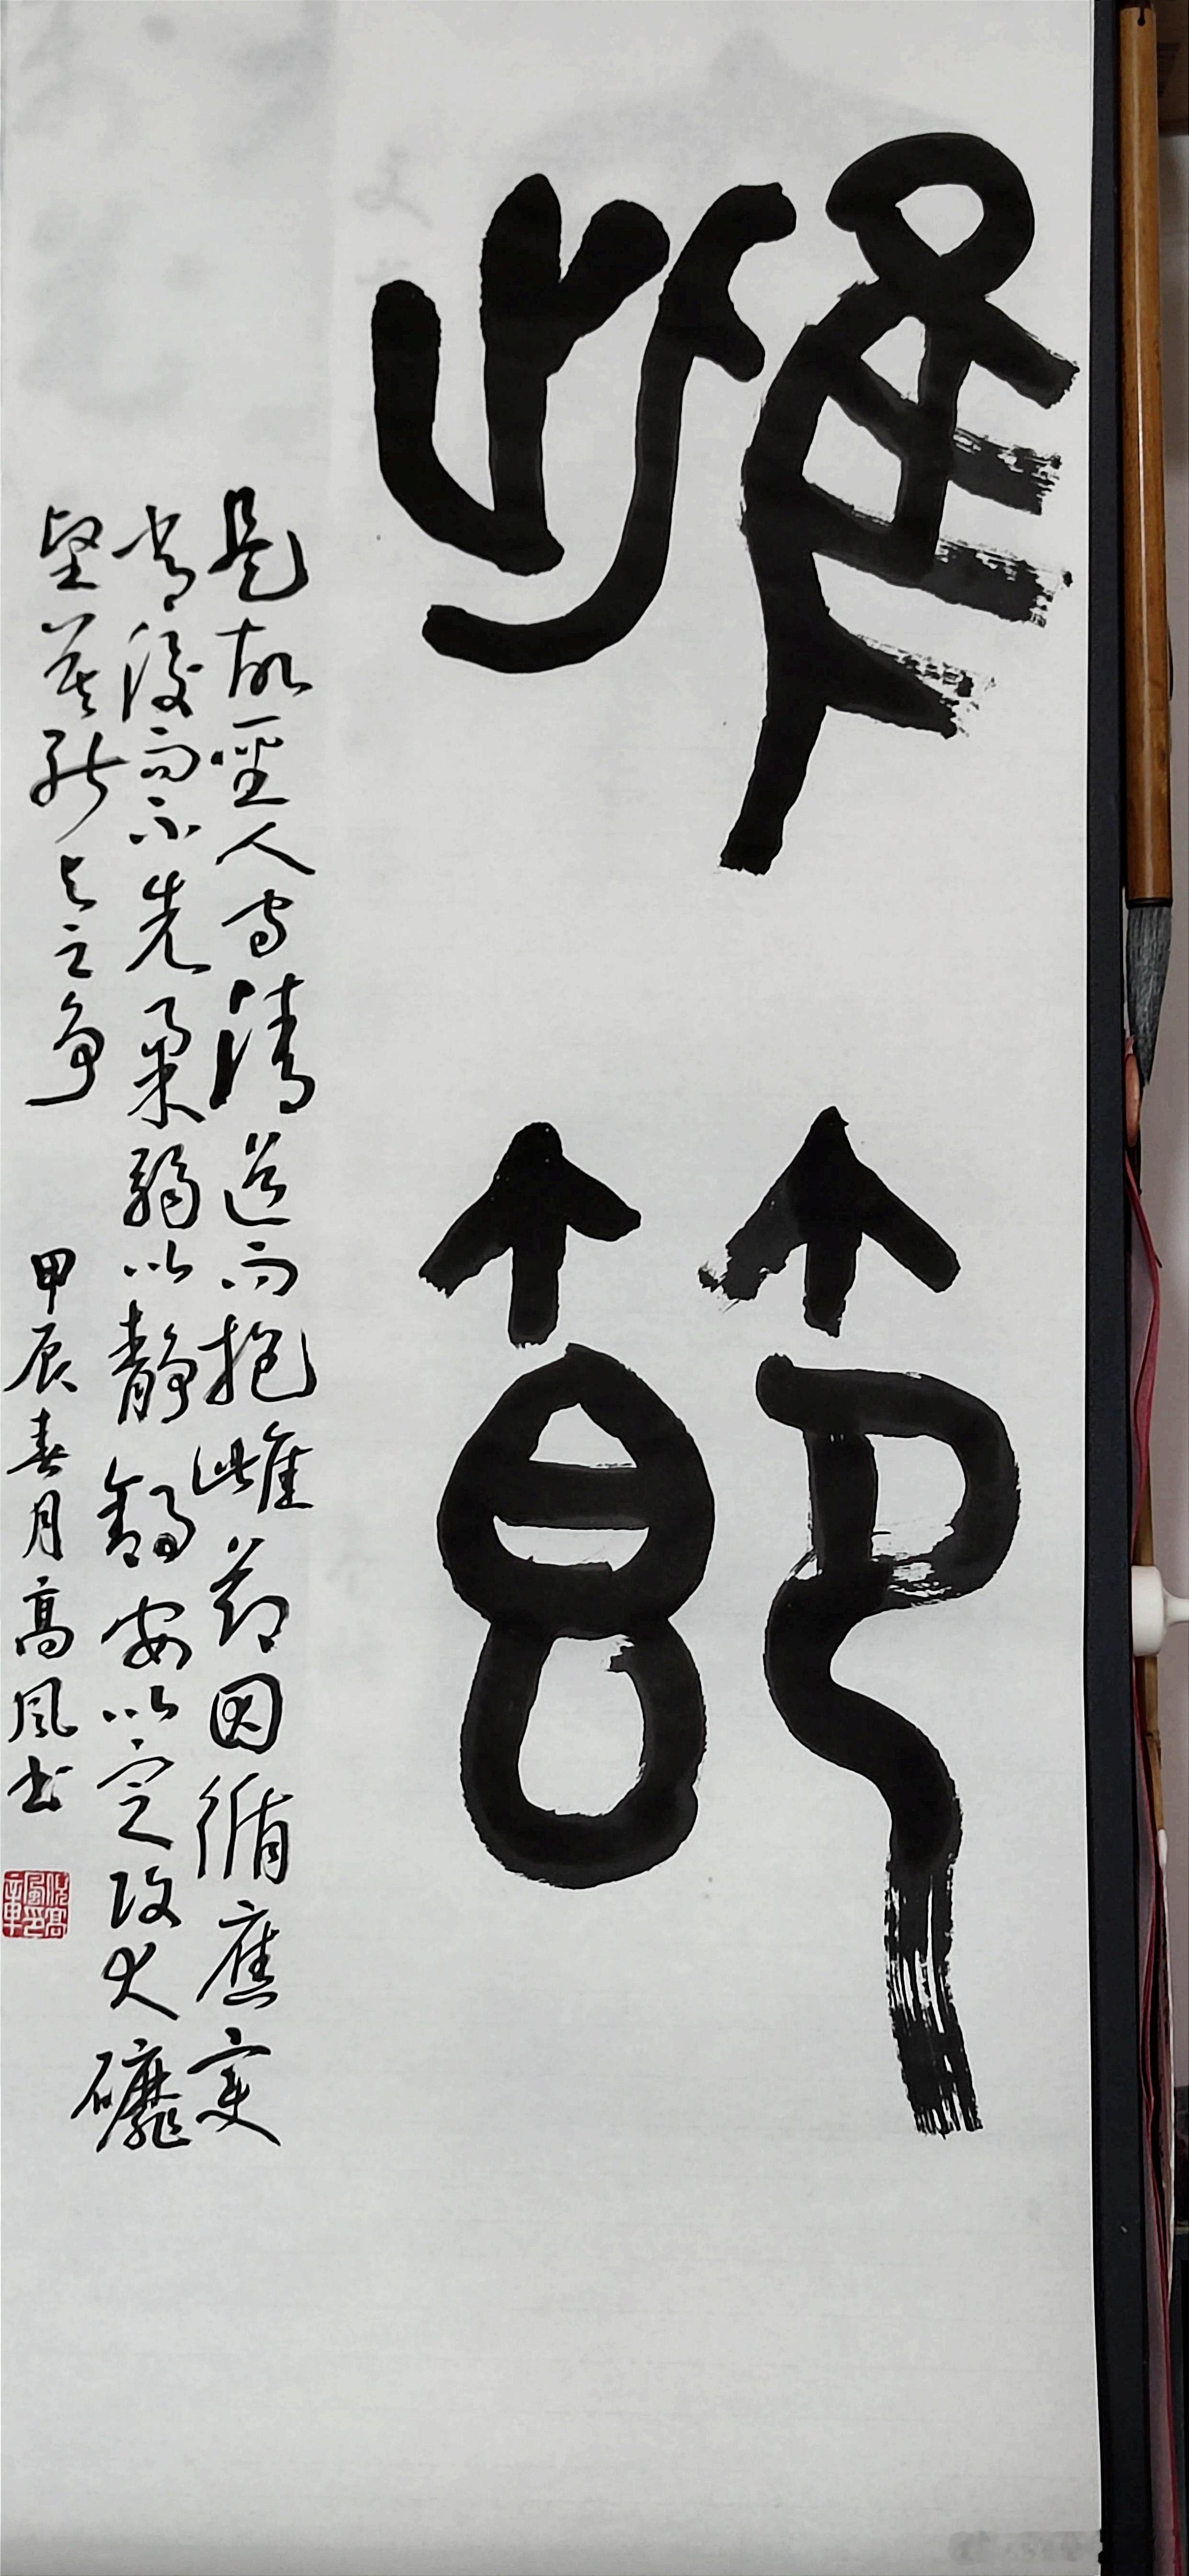 雌節
是故聖人守清道而抱雌節因循應變
常後而不先柔弱以静舒安以定攻大䃺
堅莫能与之争 甲辰春月高風书